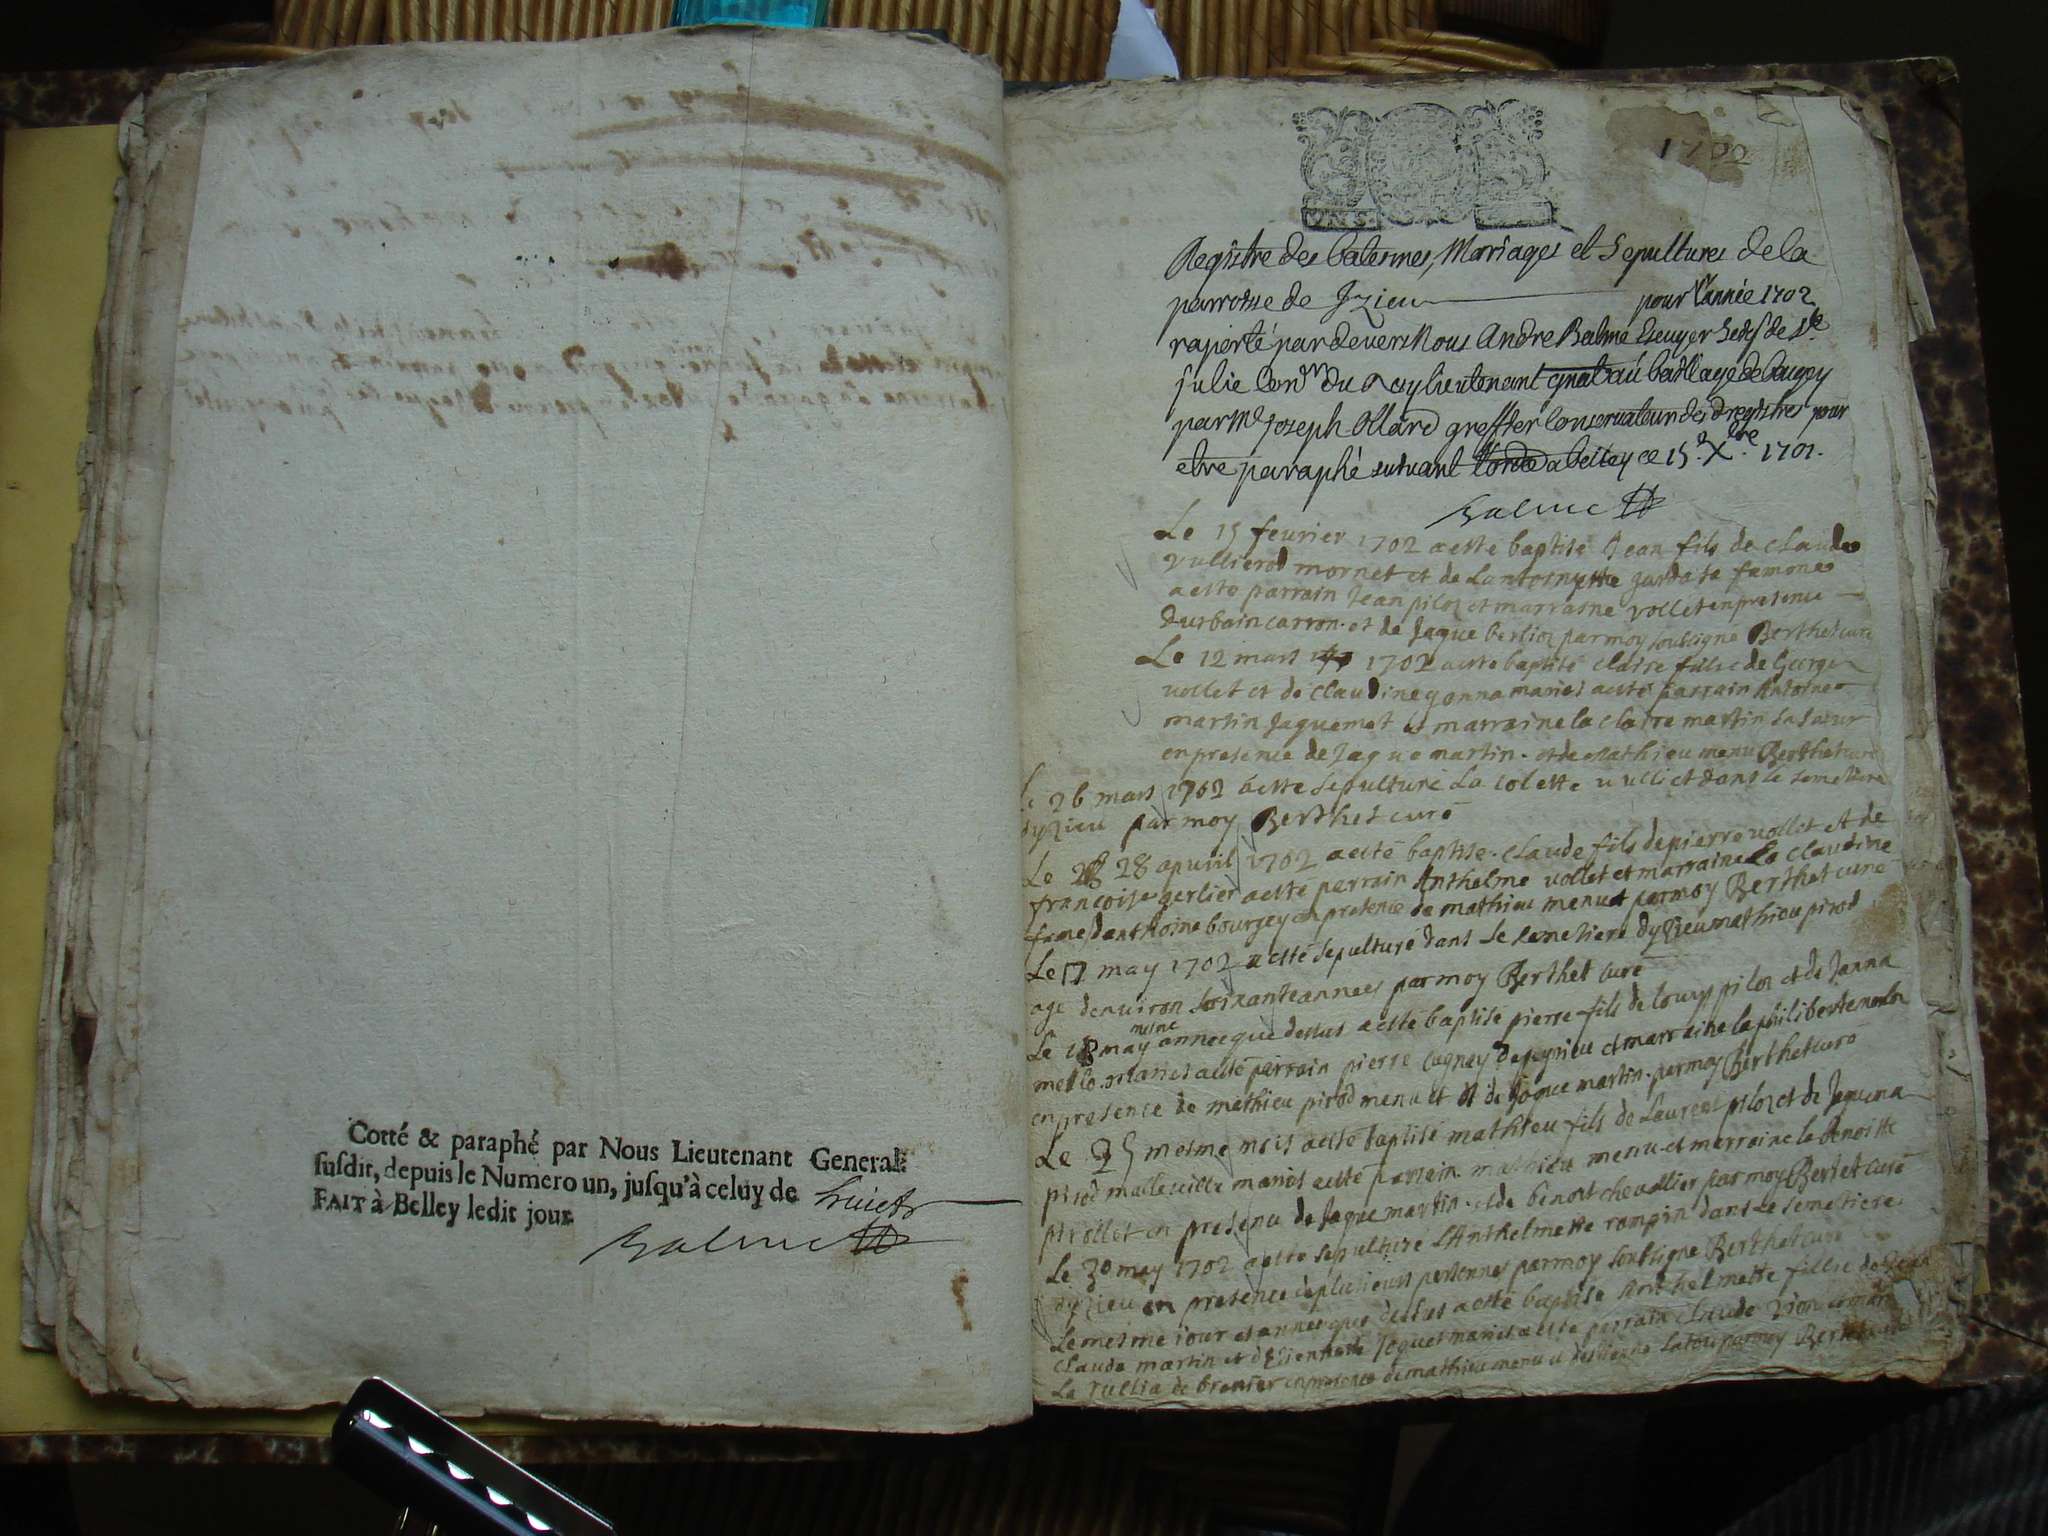 Cotté & paraphé par Nous Lieutenant General
susdit, depuis le Numero un, jusqu'à celuy de huict
FAIT à Belley ledit jour
Balme
1702
Registre des batesmes, Mariages et Sepultures de la
parroisse de Izieu pour l'année 1702
raporté pardevers Nous Andre Balme Escuyer de Ste
Julie Conr du Roy lieutenant gnal au bailliage de bugey
par Me Joseph Ollard greffier Conservateur des registres pour
etre paraphé suivant a belley ce 15 Xbre 1701.
Balme
Le 15 feurier 1702 a esté baptisé Jean fils de claude
vullierod mornet et de Lantoinette sa famme
a esté parrain Jean piloz et marraine vollet en presence
durbain carron et de Jaque berlioz par moy soubsigné Berthet curé
Le 12 mars 1702 a esté baptisé claire fille de George
vollet et de claudine gonna mariés a esté parrain Antoine
martin Jaquemet et marraine la claire martin sa sœur
en presence de Jaque martin et de Mathieu menu Berthet curé
Le 26 mars 1702 a esté sepulturé La colette vulliet dans le semetiere
dyzieu par moy Berthet curé
Le 28 28 apuril 1702 a esté baptisé claude fils de pierre vollet et de
francoise gerlier a esté parrain Anthelme vollet et marraine La claudine
fame danthoine bourgey en presence de mathieu menu et par moy Berthet curé
Le 17 may 1702 a esté sepulturé dans Le semetiere dyzieu mathieu pirod
age denuiron soixante annees par moy Berthet curé
Le 18 may mesme annee que dessus a esté baptisé pierre fils de Louys piloz et de Janna
mello mariés a esté parrain pierre cugney de peyrieu et marraine la philiberte
en presence de mathieu pirod menu et de Jaque martin par moy Berthet curé
Le 25 mesme mois a esté baptisé mathieu fils de Laurent piloz et de Jaquema
pirod malleuille mariés a esté parrain mathieu menu et marraine la benoitte
pirollet en presence de Jaque martin et de benoit cheuallier par moy Bertet curé
Le 30 may 1702 a esté sepulturé LAnthelmette rampin dans Le semetiere
dyzieu en presence de plusieurs personnes par moy soubsigné Berthet curé
Le mesme jour et annee que dessus a esté baptisé Anthelmette fille de
claude martin et dEstiennette Jaquet mariés a esté parrain claude
La rullia de brenier en presence de mathieu menu et par moy Berthet curé